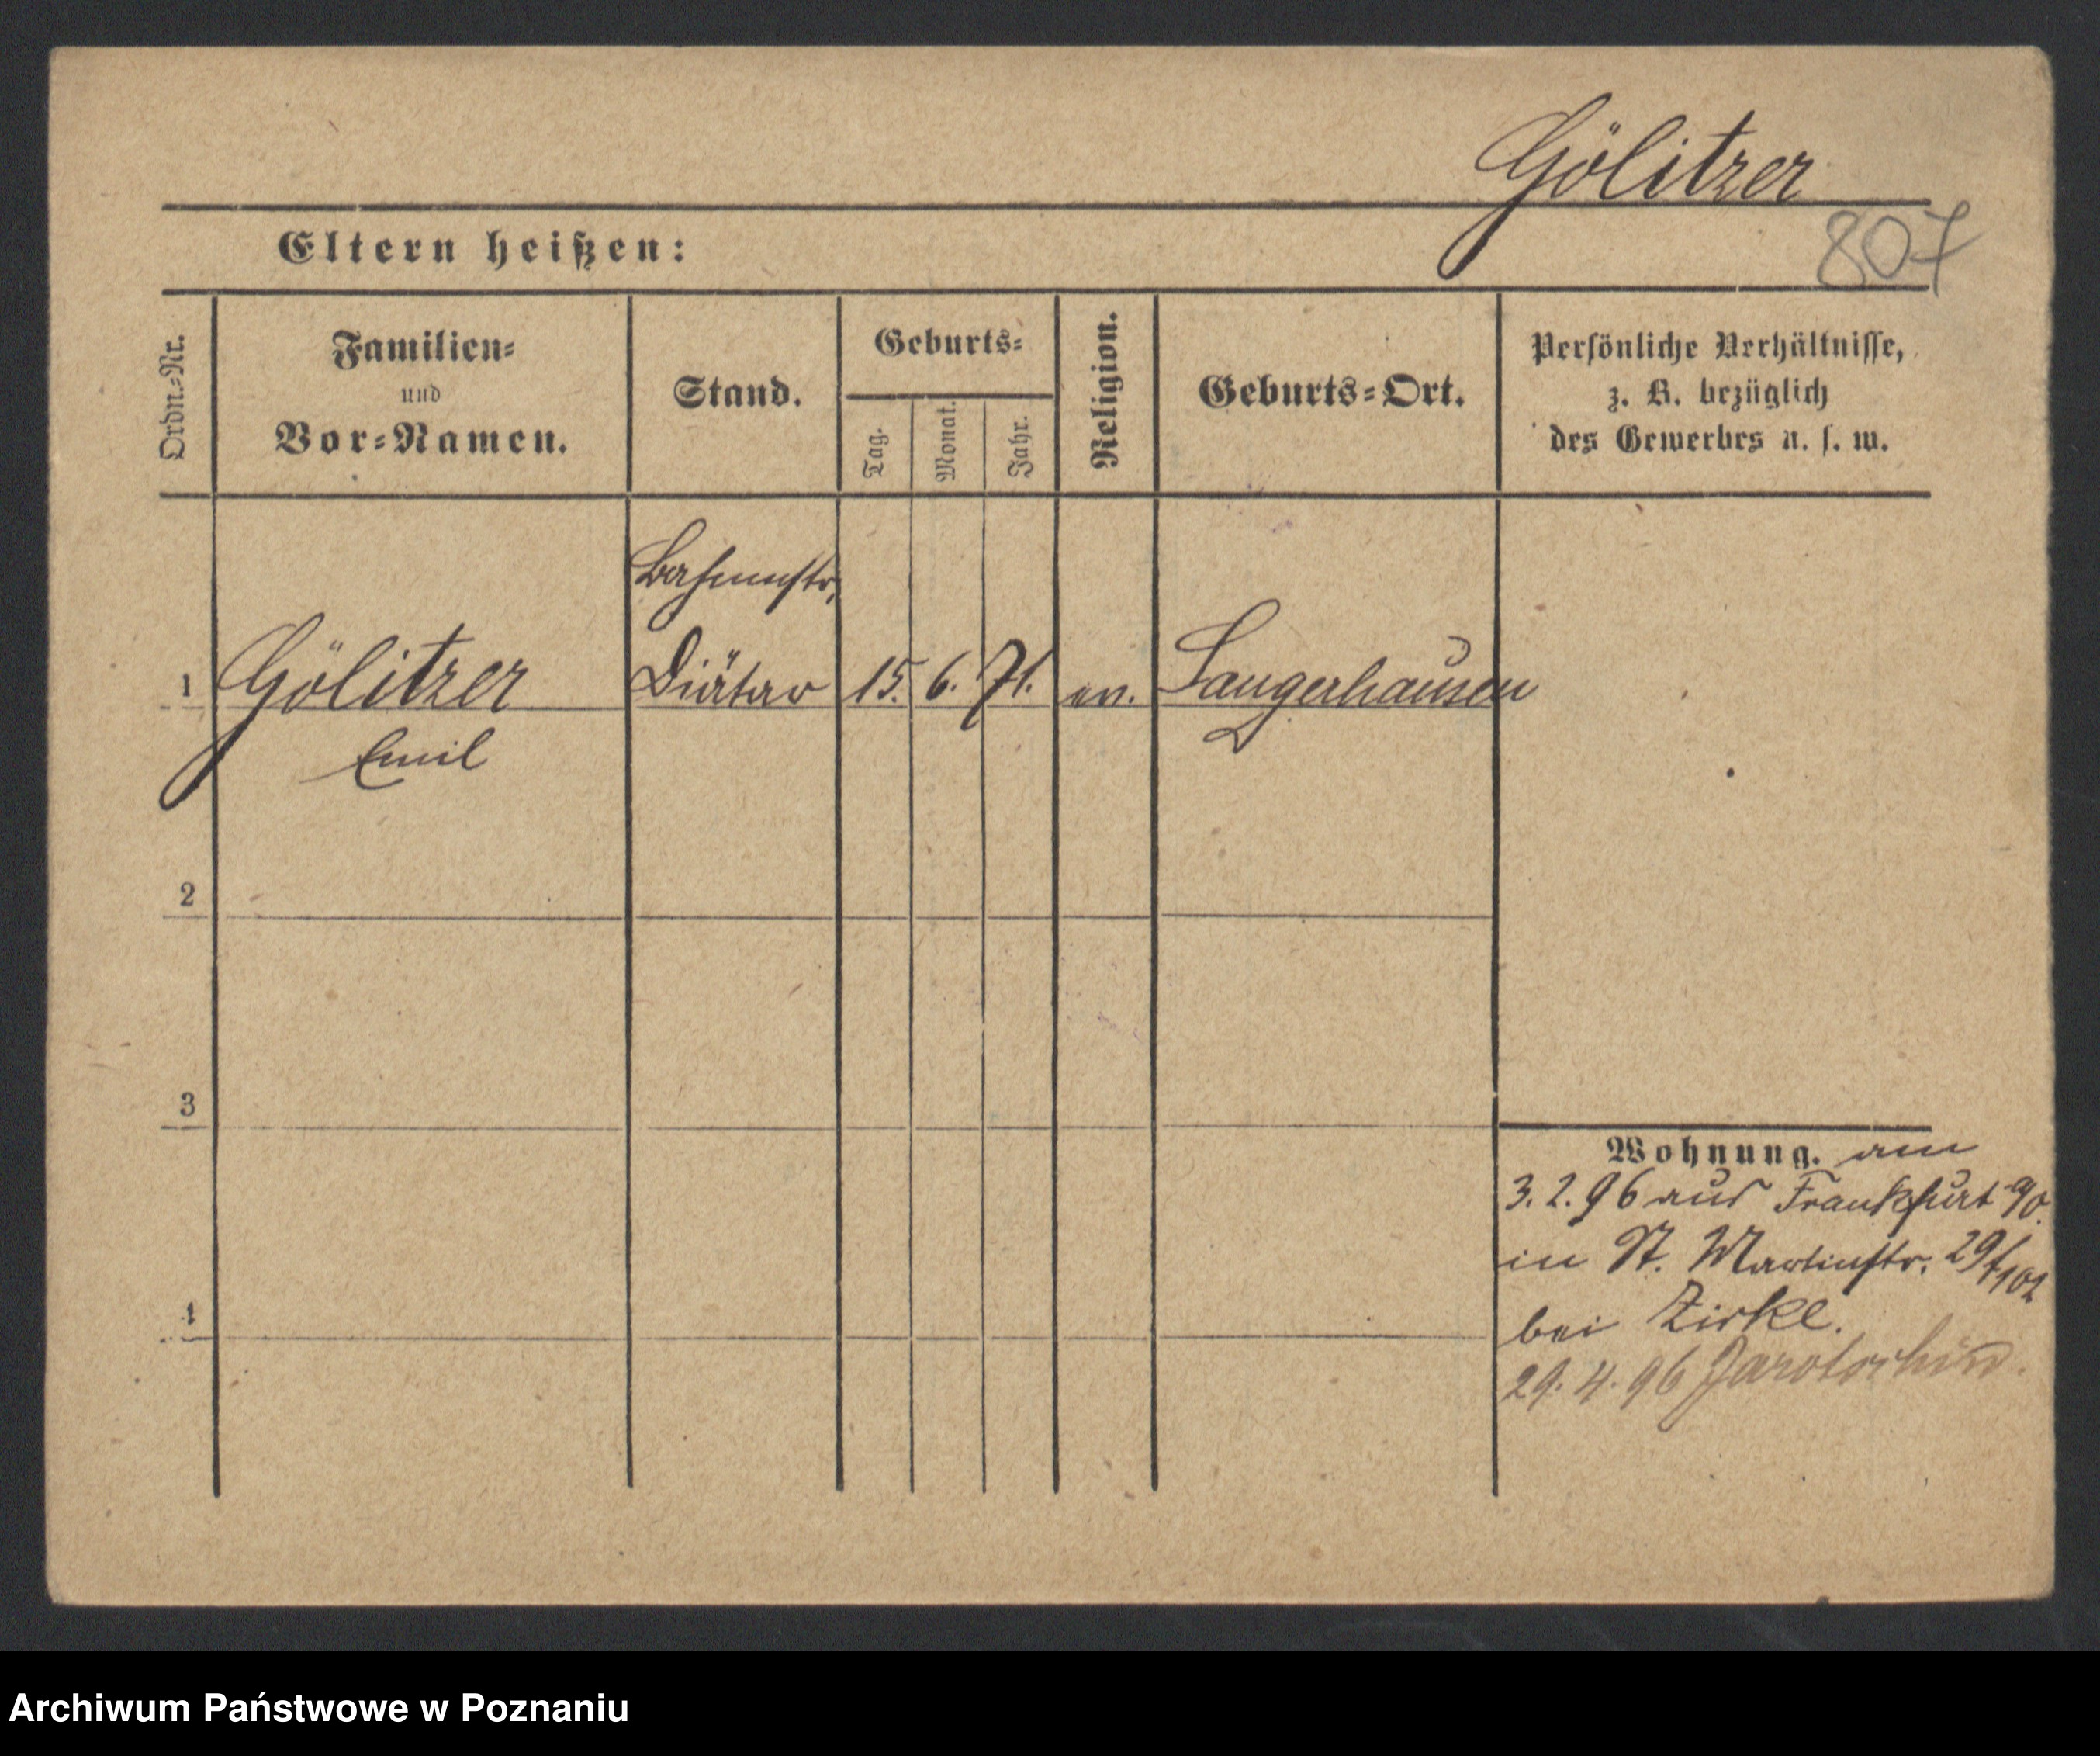 Gölitzer
807
Eltern heißen:
Ordn.=Nr.
Familien=
und
Vor=Namen.
Stand.
Geburts=
Tag.
Monat.
Jahr.
Religion.
Geburts=Ort.
Persönliche Verhältnisse,
z. B. bezüglich
des Gewerbes u. s. w.
1 Gölitzer Diätar 15. 6. 71. ev. Sangerhausen
Emil
2
3
4
Wohnung. am
3. 2. 96 aus Frankfurt a/O.
in St. Martinstr. 29
bei Zirkl.
29. 4. 96 Jarotschin.
Archiwum Państwowe w Poznaniu